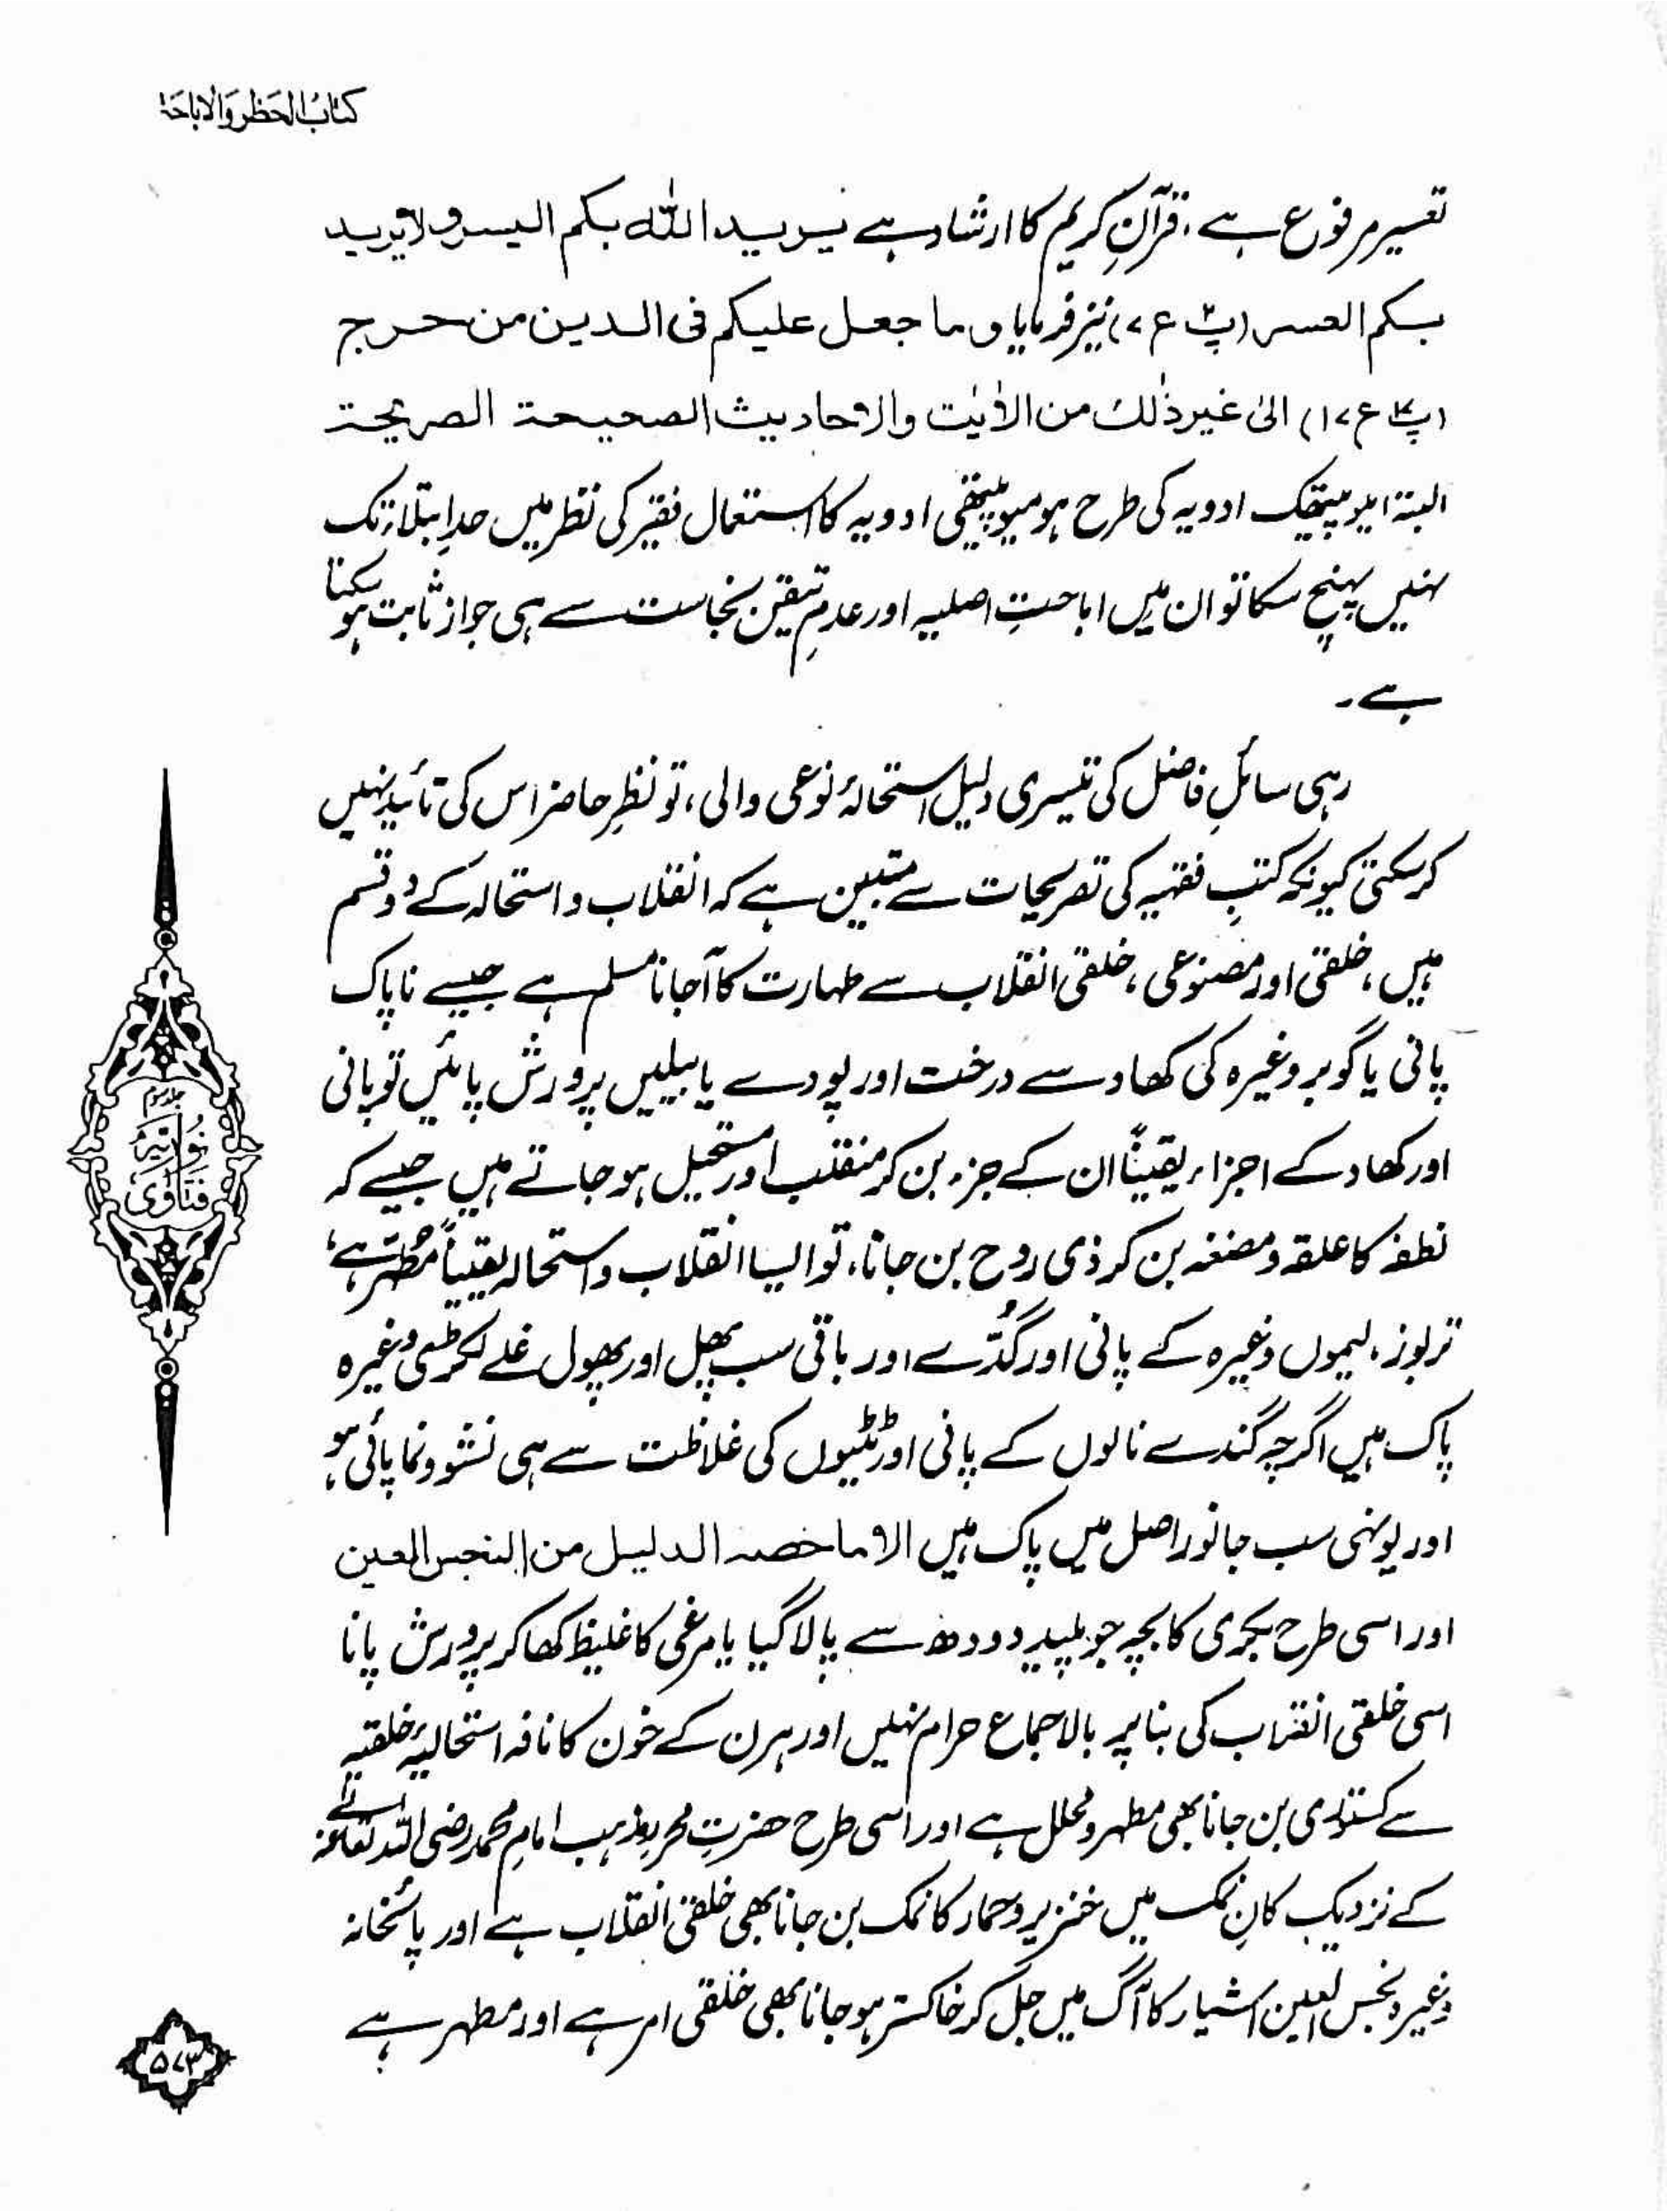 کتابُ الحَظر وَالاباحَۃ
تعسیر مرفوع ہے، قرآنِ کریم کا ارشاد ہے یرید اللّٰہ بکم الیسر ولا یرید
بکم العسر (پ۲ ع۷) نیز فرمایا و ما جعل علیکم فی الدین من حرج
(پ۱۷ ع۱۷) الیٰ غیر ذٰلک من الاٰیٰت والاحادیث الصحیحۃ الصریحۃ
البتۃ ایلوپیتھک ادویہ کی طرح ہومیوپیتھی ادویہ کا استعمال فقیر کی نظر میں حدِ ابتلاء تک
نہیں پہنچ سکا تو ان میں اباحتِ اصلیہ اور عدمِ تیقنِ نجاست سے ہی جواز ثابت ہو سکتا
ہے۔
رہی سائلِ فاضل کی تیسری دلیل استحالۂ نوعی والی، تو نظرِ حاضر اس کی تائید نہیں
کر سکتی کیونکہ کتبِ فقہیہ کی تصریحات سے متبین ہے کہ انقلاب و استحالہ کے دو قسم
ہیں، خلقتی اور مصنوعی، خلقتی انقلاب سے طہارت کا آجانا مسلم ہے جیسے ناپاک
پانی یا گوبر وغیرہ کی کھاد سے درخت اور پودے یا بیلیں پرورش پائیں تو پانی
اور کھاد کے اجزاء یقیناً ان کے جزء بن کر منقلب اور مستحیل ہو جاتے ہیں جیسے کہ
نطفہ کا علقہ و مضغہ بن کر ذی روح بن جانا، تو ایسا انقلاب و استحالہ یقیناً مُطہّر ہے،
تربوز، لیموں وغیرہ کے پانی اور گُدّے اور باقی سب پھل اور پھول غلے لکڑی وغیرہ
پاک ہیں اگرچہ گندے نالوں کے پانی اور ٹٹیوں کی غلاظت سے ہی نشو و نما پائی ہو،
اور یونہی سب جانور اصل میں پاک ہیں الا ما خصہ الدلیل من النجس العین
اور اسی طرح بکری کا بچہ جو پلید دودھ سے پالا گیا یا مرغی کا غلیظ کھا کر پرورش پانا
اسی خلقتی انقلاب کی بنا پر بالاجماع حرام نہیں اور ہرن کے خون کا نافہ استحالیۂ خلقیہ
سے کستوری بن جانا بھی مطہر و محلل ہے اور اسی طرح حضرتِ محررِ مذہب امام محمد رضی اللہ تعالےٰ عنہ
کے نزدیک کانِ نمک میں خنزیر و حمار کا نمک بن جانا بھی خلقتی انقلاب ہے اور پائخانہ
وغیرہ نجس العین اشیاء کا آگ میں جل کر خاکستر ہو جانا بھی خلقتی امر ہے اور مطہر ہے
جلد سوم
فتاویٰ نوریہ
۵۷۳